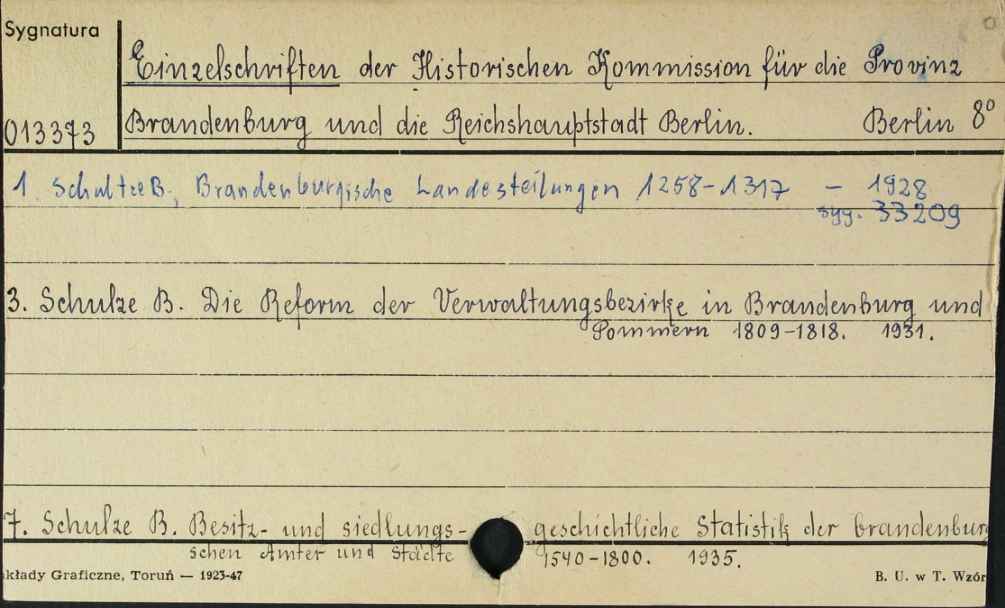 Sygnatura
Einzelschriften der Historischen Kommission für die Provinz
013373 Brandenburg und die Reichshauptstadt Berlin. Berlin 8°
1 Schultze B., Brandenburgische Landesteilungen 1258-1317 - 1928
syg. 33209
3. Schulze B. Die Reform der Verwaltungsbezirke in Brandenburg und
Pommern 1809-1818. 1931.
7. Schulze B. Besitz- und siedlungs- geschichtliche Statistik der brandenbur
schen Ämter und Städte 1540-1800. 1935.
kłady Graficzne, Toruń — 1923-47 B. U. w T. Wzór